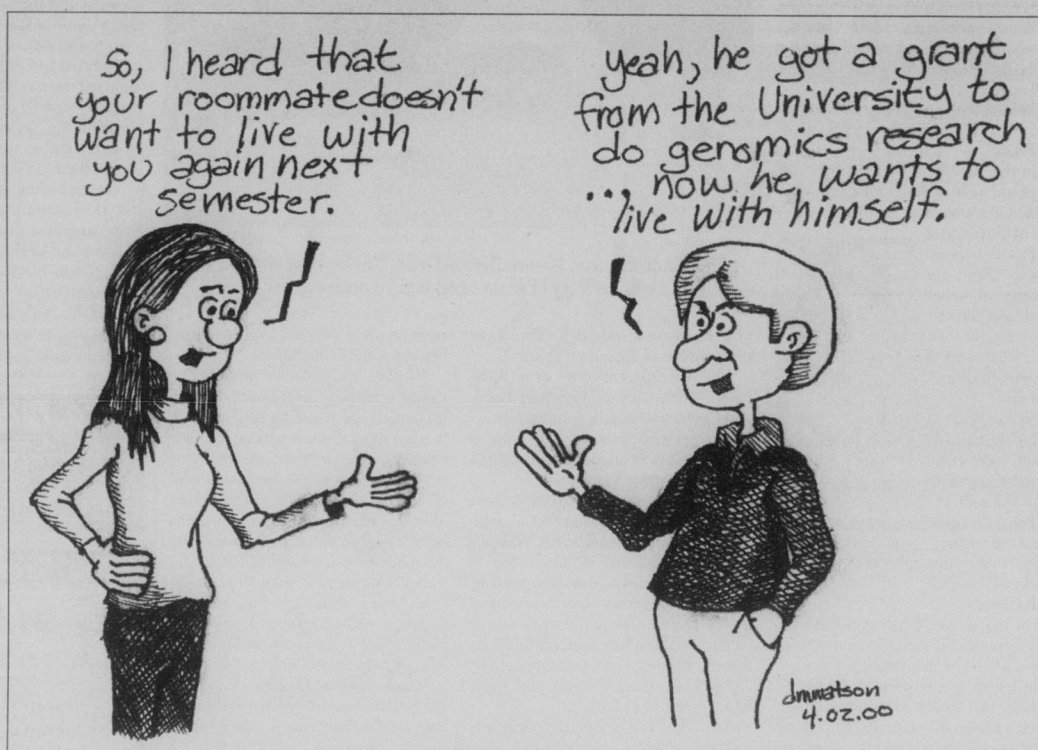 So, I heard that
your roommate doesn't
want to live with
you again next
semester.
yeah, he got a grant
from the University to
do genomics research
..., now he wants to
live with himself.
dmwatson
4.02.00